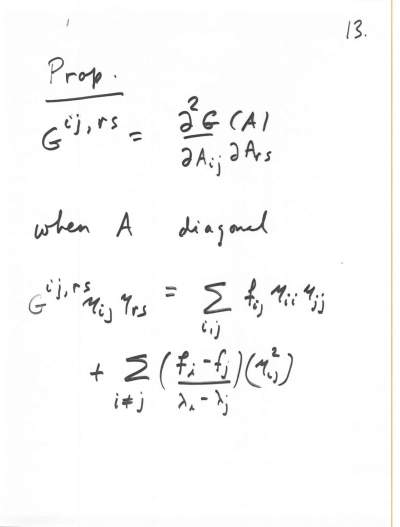 13.
Prop.
G^{ij,rs} = ∂²G(A) / ∂A_{ij} ∂A_{rs}
when A diagonal
G^{ij,rs} η_{ij} η_{rs} = Σ_{i,j} f_{ij} η_{ii} η_{jj}
+ Σ_{i≠j} ( (f_i - f_j) / (λ_i - λ_j) ) (η_{ij}^2)